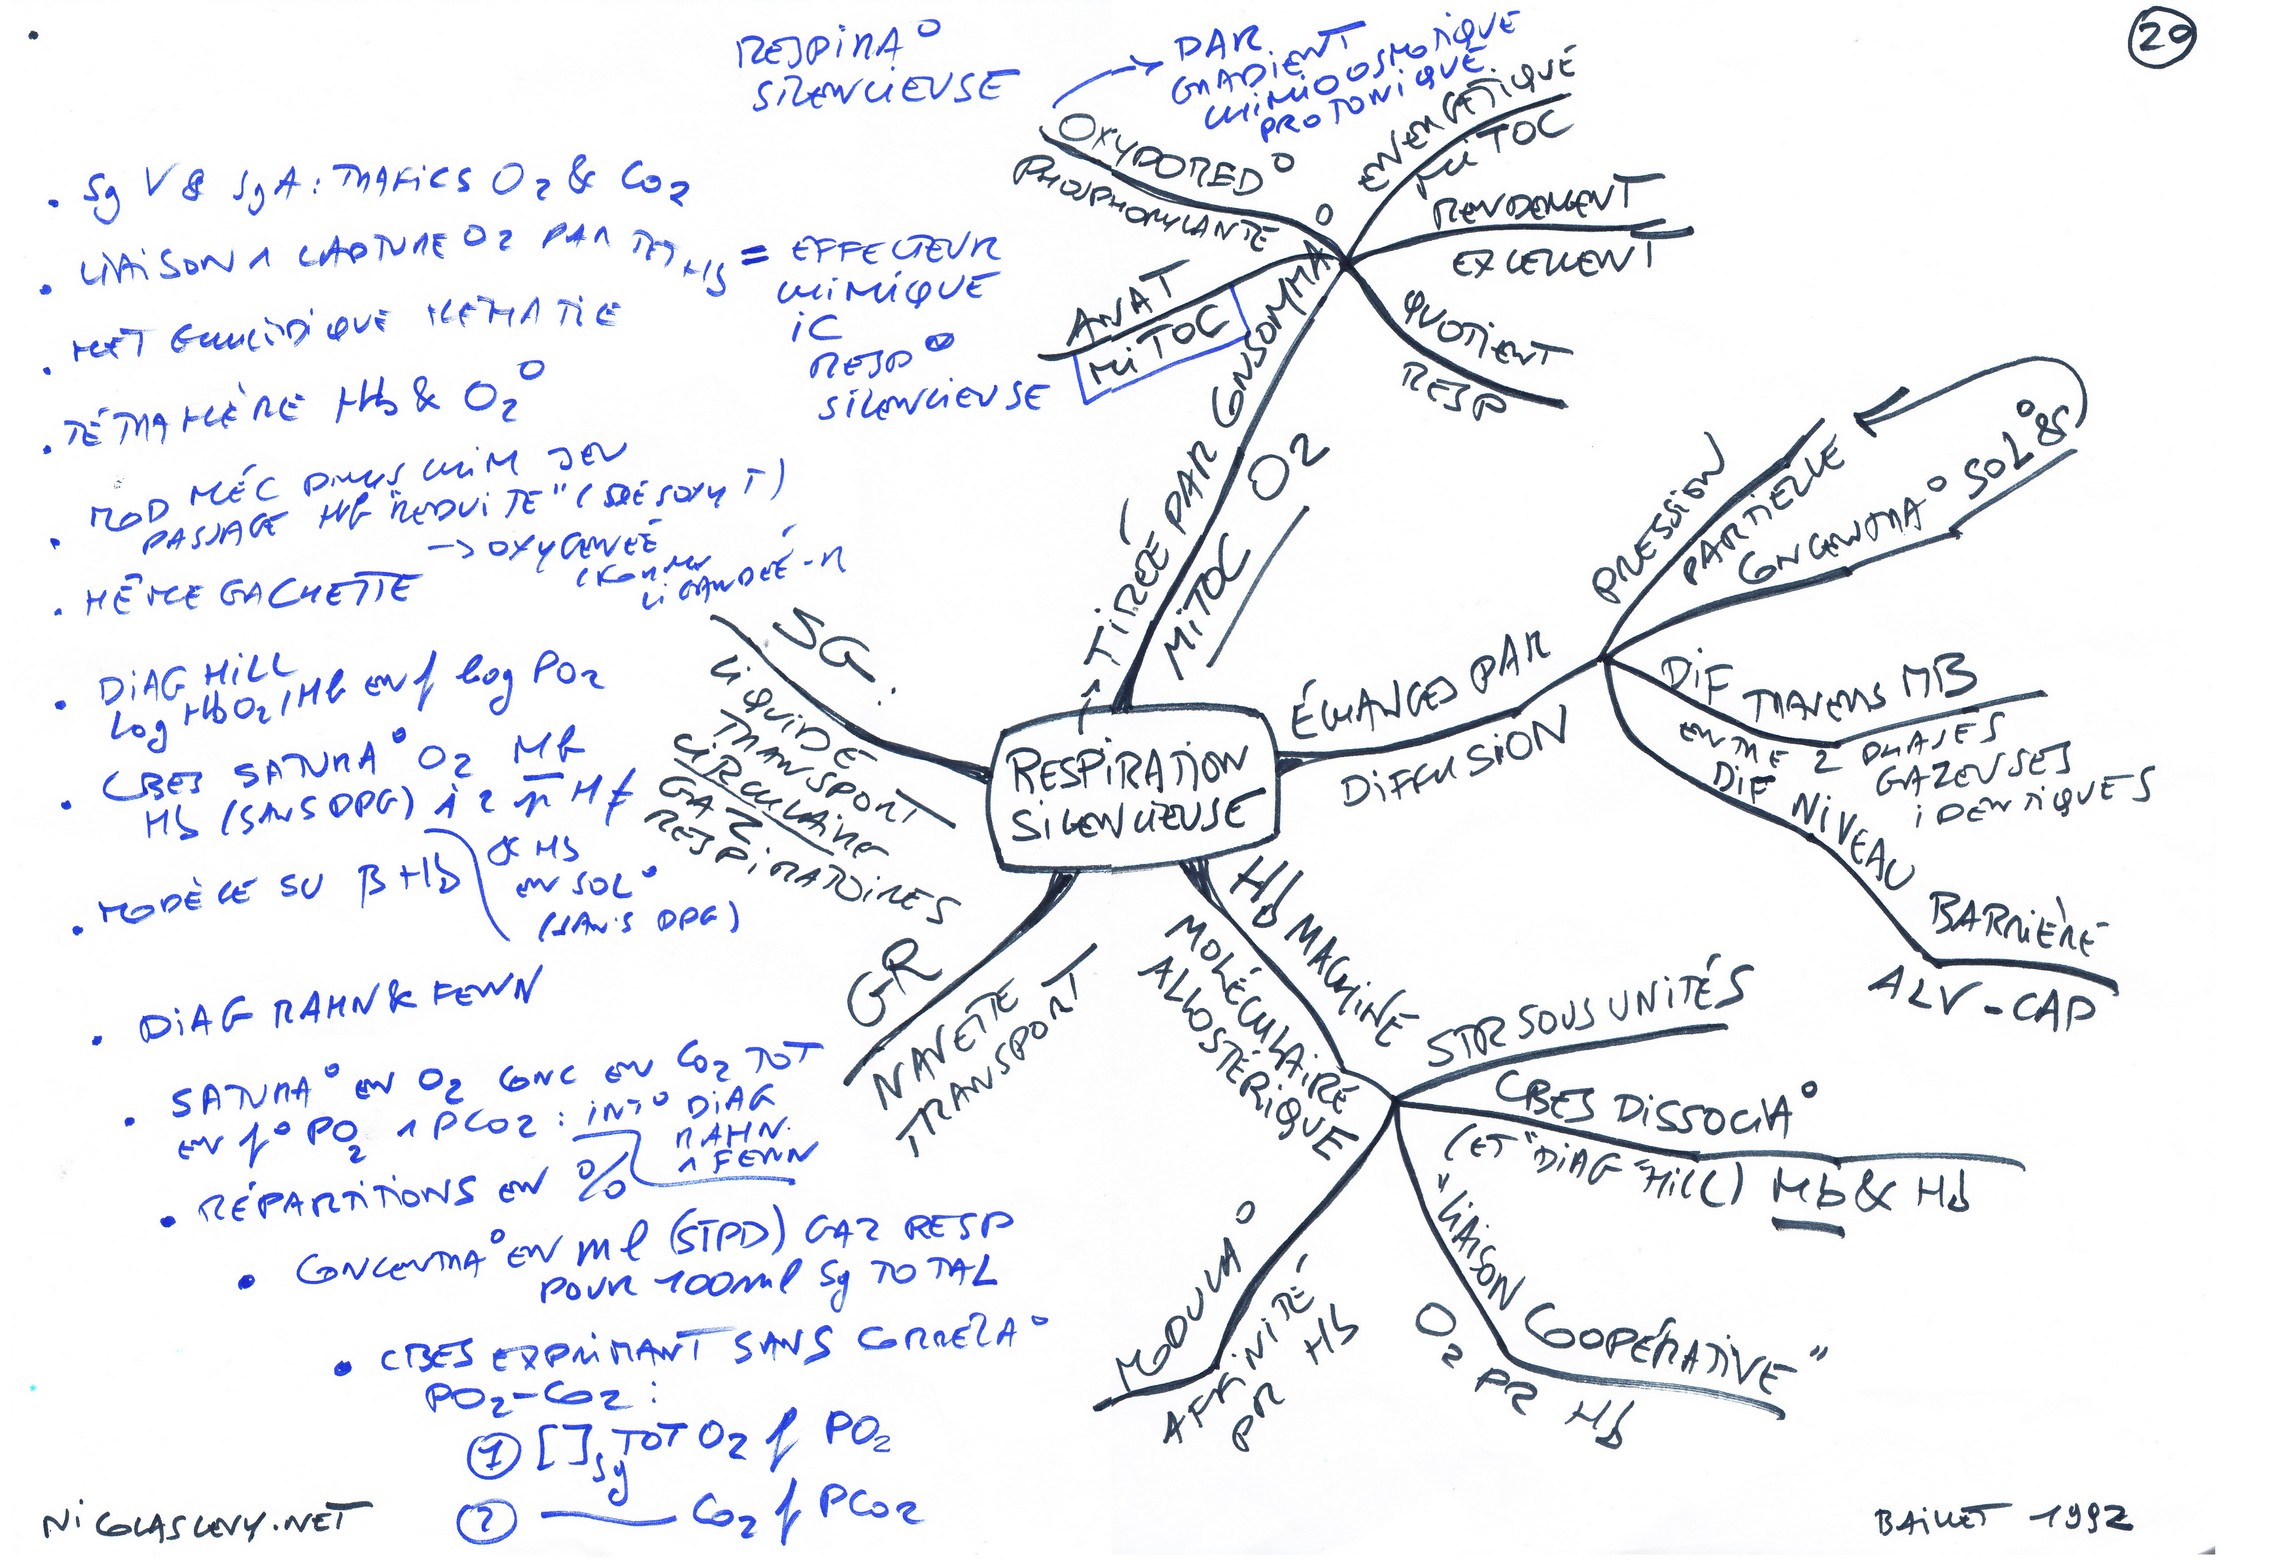 RESPIRA°
SILENCIEUSE
PAR
GRADIENT
CHIMIOOSMOTIQUE
PROTONIQUE.
20
• Sg V & SgA : TRAFICS O2 & CO2
• LIAISON 1 CAPTURE O2 PAR
= EFFECTEUR
CHIMIQUE
IC
RESP°
SILENCIEUSE
• MET GLUCIDIQUE HEMATIE
• TÉTRAMÈRE Hb & O2°
• MOD MÉC PHYS CHIM
PASSAGE Hb "REDUITE" (DÉSOXY T)
→ OXYGENÉE
LIGANDÉE-R
• MÊME GACHETTE
• DIAG HILL
log HbO2/Hb en f log PO2
• CBES SATURA° O2 Mb
Hb (SANS DPG) À 2
• MODÈLE SU β4Hb
& Hb
EN SOL°
(SANS DPG)
• DIAG RAHN & FENN
• SATURA° EN O2 CONC EN CO2 TOT
EN f° PO2 1 PCO2 : DIAG
RAHN
1 FENN
• RÉPARTITIONS EN %
• CONCENTRA° EN ml (STPD) GAZ RESP
POUR 100ml Sg TOTAL
• CBES EXPRIMANT SANS CORRÉLA°
PO2-CO2 :
① [ ]Sg TOT O2 f PO2
② —— CO2 f PCO2
RESPIRATION
SILENCIEUSE
TIRÉE PAR CONSOMMA°
MITOC O2
OXYDORED°
PHOSPHORYLANTE
ENERGÉTIQUE
MITOC
RENDEMENT
EXCELLENT
QUOTIENT
RESP
ANAT
MITOC
ÉCHANGES PAR
DIFFUSION
PRESSION
PARTIELLE
CONCENTRA° SOL° gz
DIF TRAVERS MB
ENTRE 2 PHASES
GAZEUSES
IDENTIQUES
DIF NIVEAU BARRIÈRE
ALV-CAP
Hb MACHINE
MOLÉCULAIRE
ALLOSTÉRIQUE
STR SOUS UNITÉS
CBES DISSOCIA°
(ET "DIAG "HILL) Mb & Hb
"LIAISON COOPÉRATIVE"
O2 PR Hb
MODULA°
AFFINITÉ
PR Hb
GR
NAVETTE
TRANSPORT
SG.
LIQUIDE
TRANSPORT
CIRCULAIRE
GAZ
RESPIRATOIRES
NICOLASLEVY.NET
BAILLET 1992